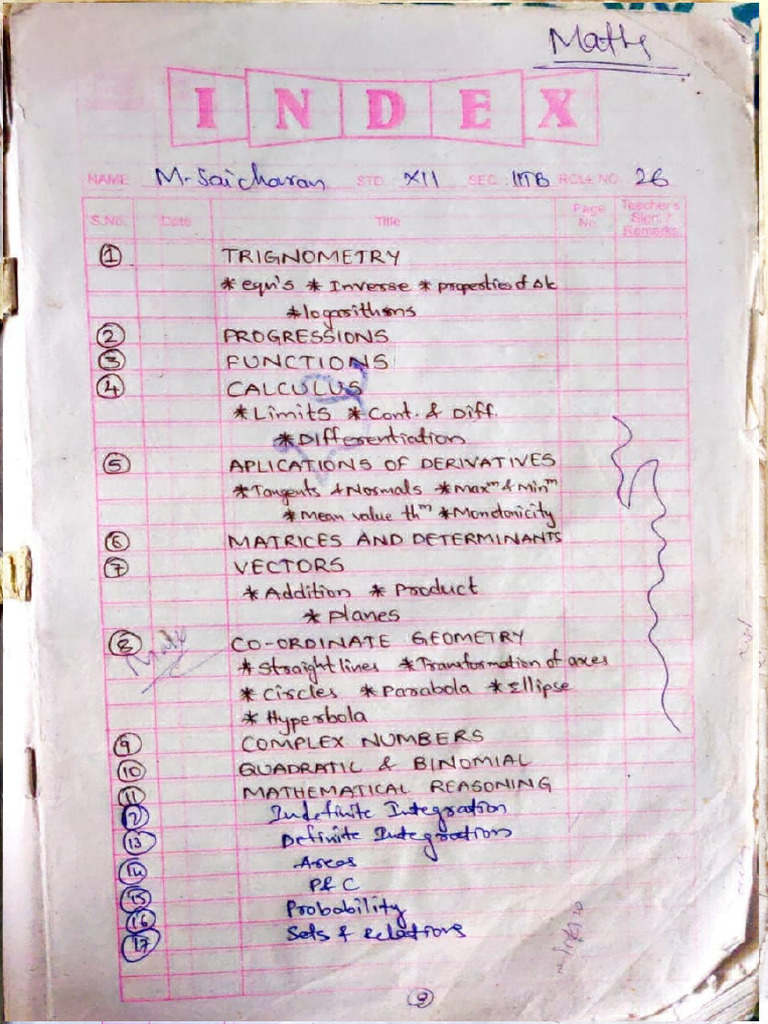 Maths
INDEX
NAME M. Saicharan STD XII SEC IITB ROLL NO. 26
S.No. Date Title Page No. Teacher's Sign / Remarks
1 TRIGNOMETRY
* equn's * Inverse * properties of Δle
* logarithms
2 PROGRESSIONS
3 FUNCTIONS
4 CALCULUS
* Limits * Cont. & Diff.
* Differentiation
5 APLICATIONS OF DERIVATIVES
* Tangents & Normals * Maxm & Minm
* Mean value thm * Monotonicity
6 MATRICES AND DETERMINANTS
7 VECTORS
* Addition * Product
* planes
8 CO-ORDINATE GEOMETRY
* Straight lines * Transformation of axes
* Circles * Parabola * Ellipse
* Hyperbola
9 COMPLEX NUMBERS
10 QUADRATIC & BINOMIAL
11 MATHEMATICAL REASONING
12 Indefinite Integration
13 Definite Integration
14 Areas
15 P&C
16 Probability
17 Sets & Relations
9